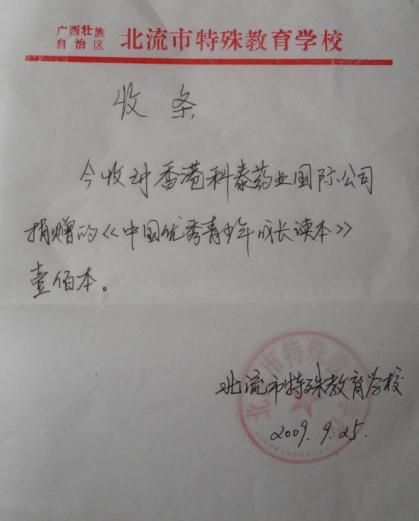 广西壮族
自治区 北流市特殊教育学校
收条
今收到香港科泰药业国际公司
捐赠的《中国优秀青少年成长读本》
壹佰本。
北流市特殊教育学校
2009.9.25.